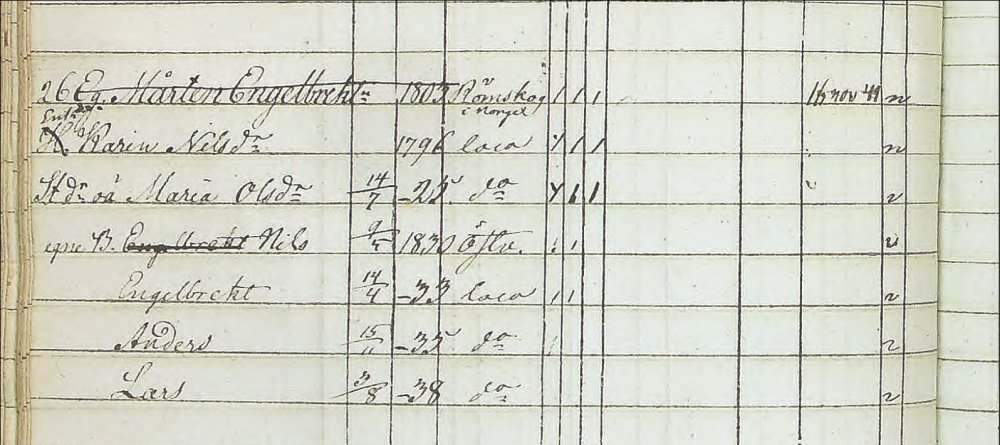 26 Eg. Mårten Engelbrehtn 1803 Römskog i Norget / / / 15 nov 41 n
Enk.
H. Karin Nilsdr 1796 loco y / / n
St dr oä Maria Olsdr 14/7 -25 do y 1 1 n
egne B. Engelbreckt Nils 9/5 1830 Östv. n
Engelbreckt 14/4 -33 loco / / n
Anders 15/11 -35 do / n
Lars 3/8 -38 do n